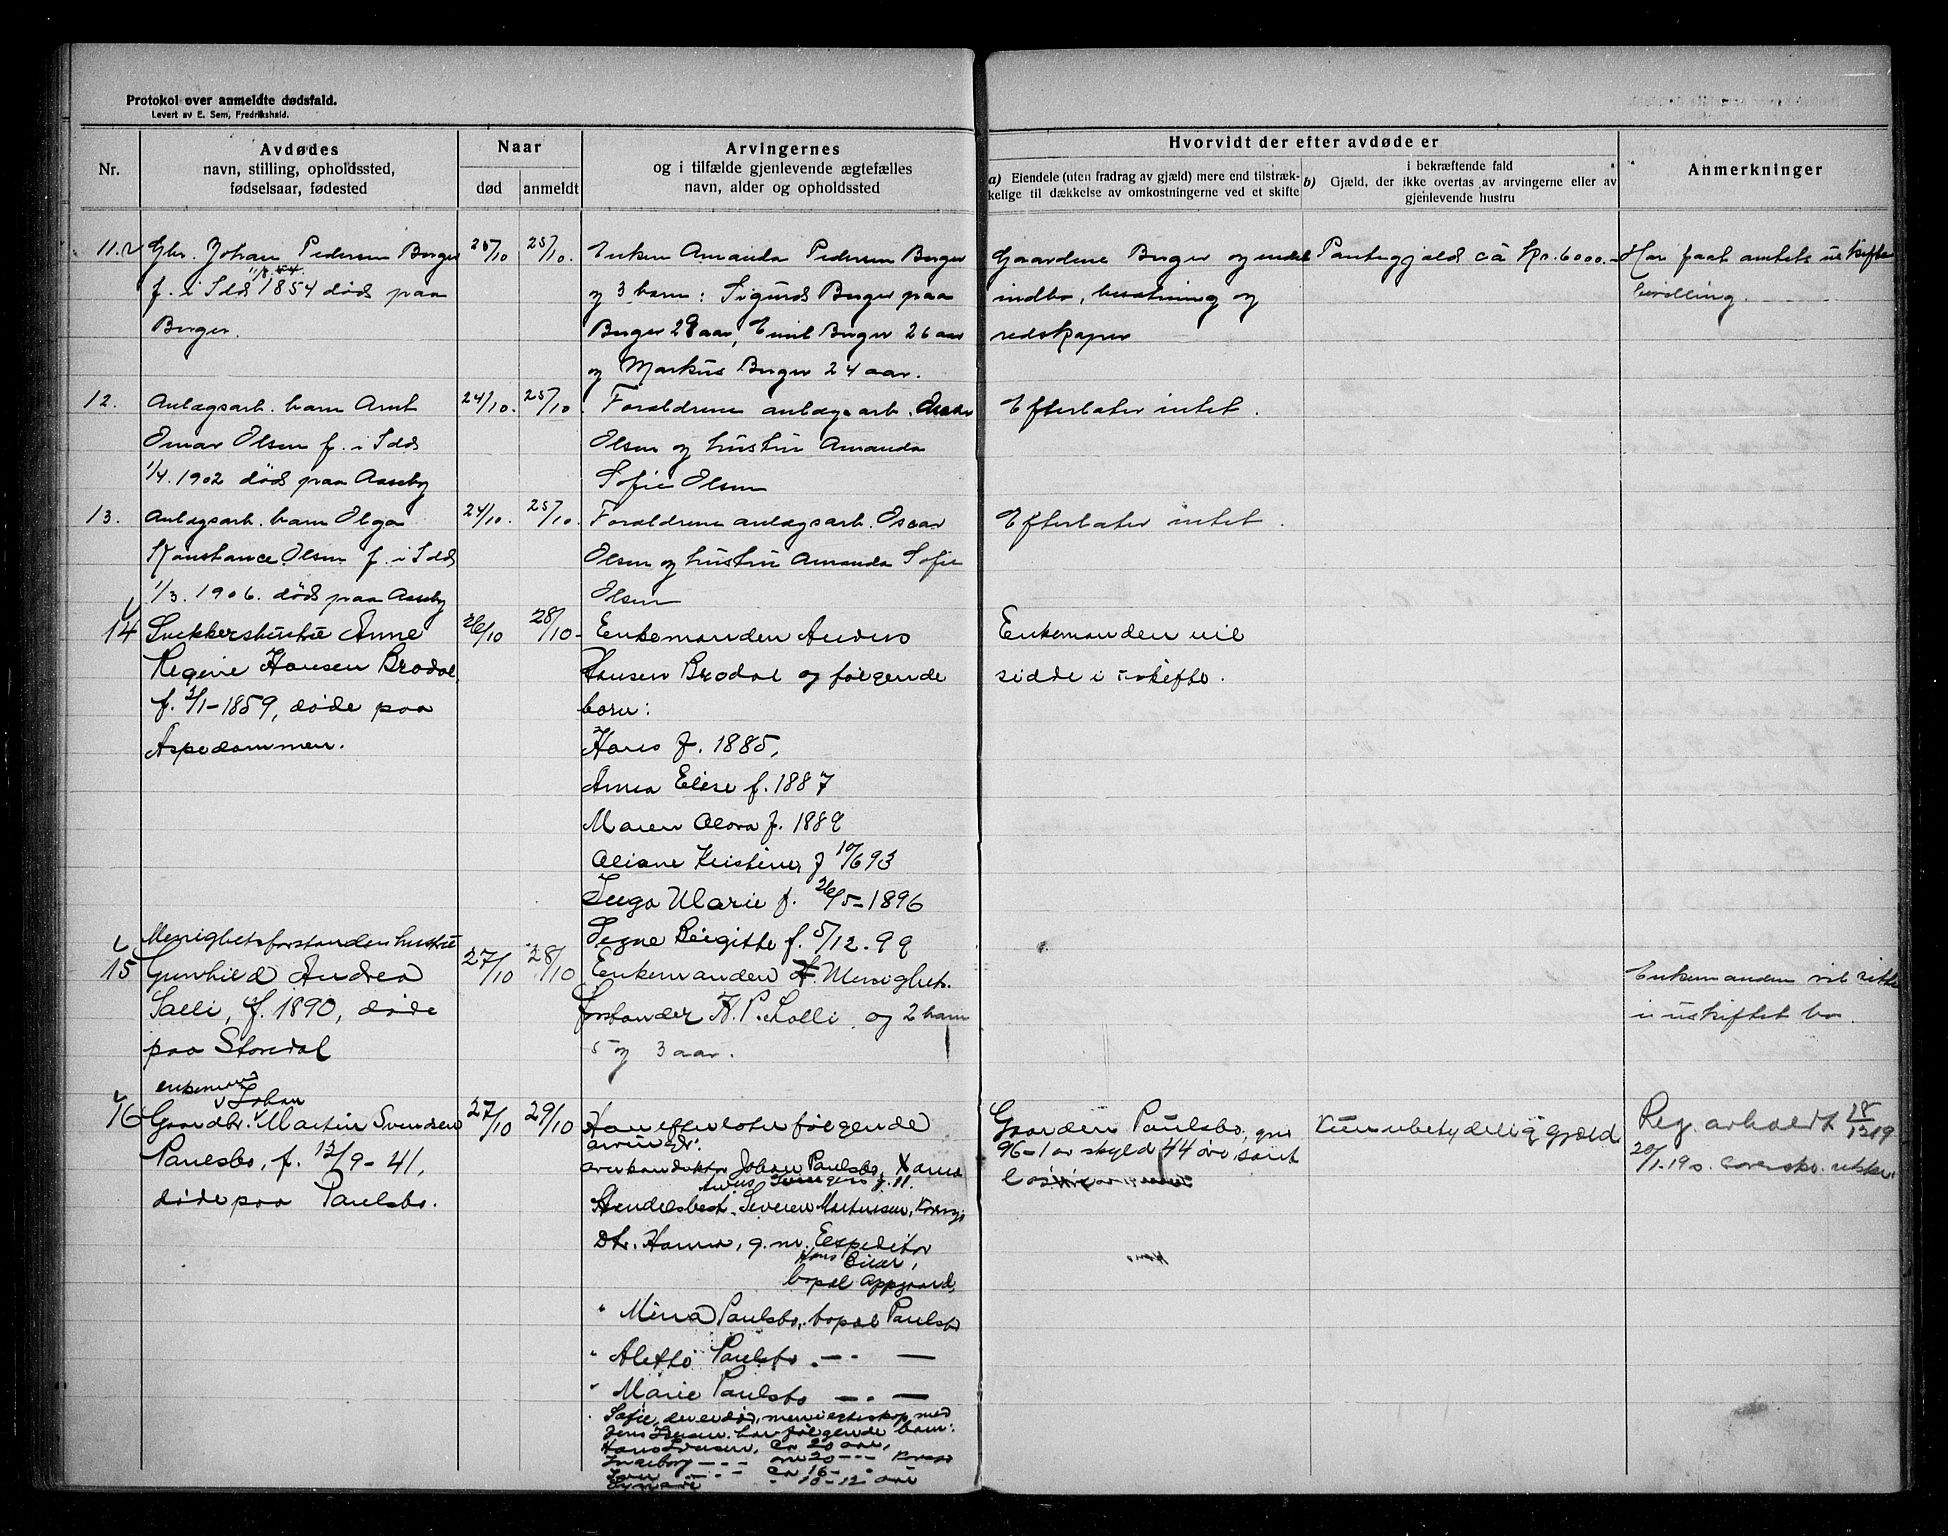 Protokol over anmeldte dødsfald.
Levert av E. Sem, Fredrikshald.
Nr.
Avdødes
navn, stilling, opholdssted,
fødselsaar, fødested
Naar
død
anmeldt
Arvingernes
og i tilfælde gjenlevende ægtefælles
navn, alder og opholdssted
Hvorvidt der efter avdøde er
a) Eiendele (uten fradrag av gjæld) mere end tilstræk-
kelige til dækkelse av omkostningerne ved et skifte
i bekræftende fald
b) Gjæld, der ikke overtas av arvingerne eller av
gjenlevende hustru
Anmerkninger
11.
Gbr. Johan Pedersen Berger
f. i Idd 1854 død paa
Berger.
25/10
25/10.
Enken Amanda Pedersen Berger
og 3 barn: Sigurd Berger paa
Berger 29 aar, Emil Berger 26 aar
og Markus Berger 24 aar.
Gaardene Berger og endel
indbo, besætning og
redskaper
Pantegjæld ca kr. 6000.-
Har faat amtets uskifte
bevilling.
12.
Anlægsarb. barn Arnt
Omar Olsen f. i Idd
1/4. 1902 død paa Aaseby
24/10.
25/10.
Forældrene anlægsarb. Oscar
Olsen og hustru Amanda
Sofie Olsen
Efterlater intet.
13.
Anlægsarb. barn Olga
Konstance Olsen f. i Idd
1/3. 1906. død paa Aaseby
24/10.
25/10.
Forældrene anlægsarb. Oscar
Olsen og hustru Amanda Sofie
Olsen
Efterlater intet.
14
Snekkerhustru Anne
Regine Hansen Brodal,
f. 2/1-1859, døde paa
Aspedammen.
26/10
28/10-
Enkemanden Anders
Hansen Brodal og følgende
børn:
Hans f. 1885,
Anna Elise f. 1887
Maren Alora f. 1889
Oliane Kristine, f 10/6 93
Inga Marie f. 26/5-1896
Signe Birgitte f. 5/12. 99
Enkemanden vil
sidde i uskifte.
15
Menighetsforstander hustru
Gunhild Andrea
Salli, f. 1890, døde
paa Storedal
27/10
28/10
Enkemanden Menighets
forstander H. P. Salli og 2 barn
5 og 3 aar.
Enkemanden vil sitte
i uskiftet bo.
16
enkemand
Johan
Gaardbr. Martin Svendsen
Paulsbo, f. 12/9-41,
døde paa Paulsbo.
27/10
29/10
Han efterlater følgende
arvinger:
overkonduktør Johan Paulsbo,
Handelsbest. Severin Martinsen,
Dtr. Hanna, g. m. Expeditør
Hans
bopæl
" Mina Paulsbo, bopæl Paulsbo
" Alette Paulsbo -"- —
" Marie Paulsbo -"- —
" Sofie, der er død, men i egteskap med
Jens Iversen har følgende barn:
Hans Iversen, ca 20 aar,
Ingeborg
ca 16
10-12 aar
Gaarden Paulsbo, gnr
96-1 av skyld 44 øre, samt
løsøre
Kun ubetydelig gjæld
Reg. avholdt 18/12 19
20/1.19